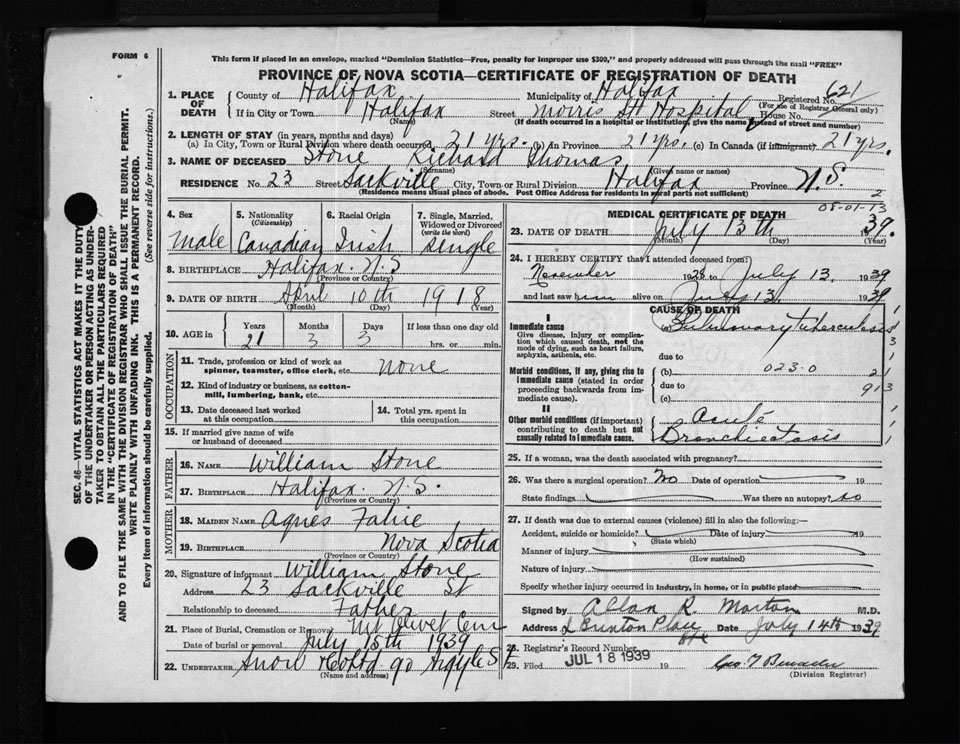 FORM 6
This form if placed in an envelope, marked "Dominion Statistics—Free, penalty for improper use $300," and properly addressed will pass through the mail "FREE"
PROVINCE OF NOVA SCOTIA—CERTIFICATE OF REGISTRATION OF DEATH
SEC. 46—VITAL STATISTICS ACT MAKES IT THE DUTY
OF THE UNDERTAKER OR PERSON ACTING AS UNDER-
TAKER TO OBTAIN ALL THE PARTICULARS REQUIRED
IN THE "CERTIFICATE OF REGISTRATION OF DEATH"
AND TO FILE THE SAME WITH THE DIVISION REGISTRAR WHO SHALL ISSUE THE BURIAL PERMIT.
WRITE PLAINLY WITH UNFADING INK. THIS IS A PERMANENT RECORD.
Every item of information should be carefully supplied. (See reverse side for instructions.)
1. PLACE OF DEATH County of Halifax Municipality of Halifax Registered No. 621
(For use of Registrar General only)
If in City or Town Halifax Street Morris St Hospital House No.
(Name) (If death occurred in a hospital or institution, give the name instead of street and number)
2. LENGTH OF STAY (in years, months and days)
(a) In City, Town or Rural Division where death occurred 21 yrs. (b) In Province 21 yrs. (c) In Canada (if immigrant) 21 yrs.
3. NAME OF DECEASED Stone Richard Thomas
(Surname) (Given name or names)
RESIDENCE No. 23 Street Sackville City, Town or Rural Division Halifax Province N.S.
(Residence means usual place of abode. Post Office Address for residents in rural parts not sufficient) 2
4. Sex 5. Nationality (Citizenship) 6. Racial Origin 7. Single, Married, Widowed or Divorced (write the word)
Male Canadian Irish Single
8. BIRTHPLACE Halifax N.S
9. DATE OF BIRTH April 10th 1918
(Month) (Day) (Year)
10. AGE in Years Months Days If less than one day old
21 3 3 hrs. or min.
OCCUPATION
11. Trade, profession or kind of work as spinner, teamster, office clerk, etc. None
12. Kind of industry or business, as cotton-mill, lumbering, bank, etc.
13. Date deceased last worked at this occupation
14. Total yrs. spent in this occupation
15. If married give name of wife or husband of deceased
FATHER
16. NAME William Stone
17. BIRTHPLACE Halifax N.S.
(Province or Country)
MOTHER
18. MAIDEN NAME Agnes
19. BIRTHPLACE Nova Scotia
(Province or Country)
20. Signature of informant William Stone
Address 23 Sackville St
Relationship to deceased Father
21. Place of Burial, Cremation or Removal Mt Olivet Cem
Date of burial or removal July 15th 1939
22. UNDERTAKER Snow 90 Argyle St
(Name and address)
MEDICAL CERTIFICATE OF DEATH
08-01-13
23. DATE OF DEATH July 13th 39.
(Month) (Day) (Year)
24. I HEREBY CERTIFY that I attended deceased from:
November 1938 to July 13, 1939
and last saw him alive on July 13, 1939
CAUSE OF DEATH
I
Immediate cause
Give disease, injury or complication which caused death, not the mode of dying, such as heart failure, asphyxia, asthenia, etc.
(a) Pulmonary tuberculosis
due to
Morbid conditions, if any, giving rise to immediate cause (stated in order proceeding backwards from immediate cause).
(b) 023-0 21
due to 913
(c)
II
Other morbid conditions (if important) contributing to death but not causally related to immediate cause.
Acute
Bronchiectasis
25. If a woman, was the death associated with pregnancy?
26. Was there a surgical operation? No Date of operation 19
State findings Was there an autopsy? no
27. If death was due to external causes (violence) fill in also the following:—
Accident, suicide or homicide? Date of injury 19
(State which)
Manner of injury
(How sustained)
Nature of injury
Specify whether injury occurred in industry, in home, or in public place
Signed by Allan R. Morton M.D.
Address Brunton Place Date July 14th 1939
28. Registrar's Record Number
29. Filed JUL 18 1939 19
(Division Registrar)